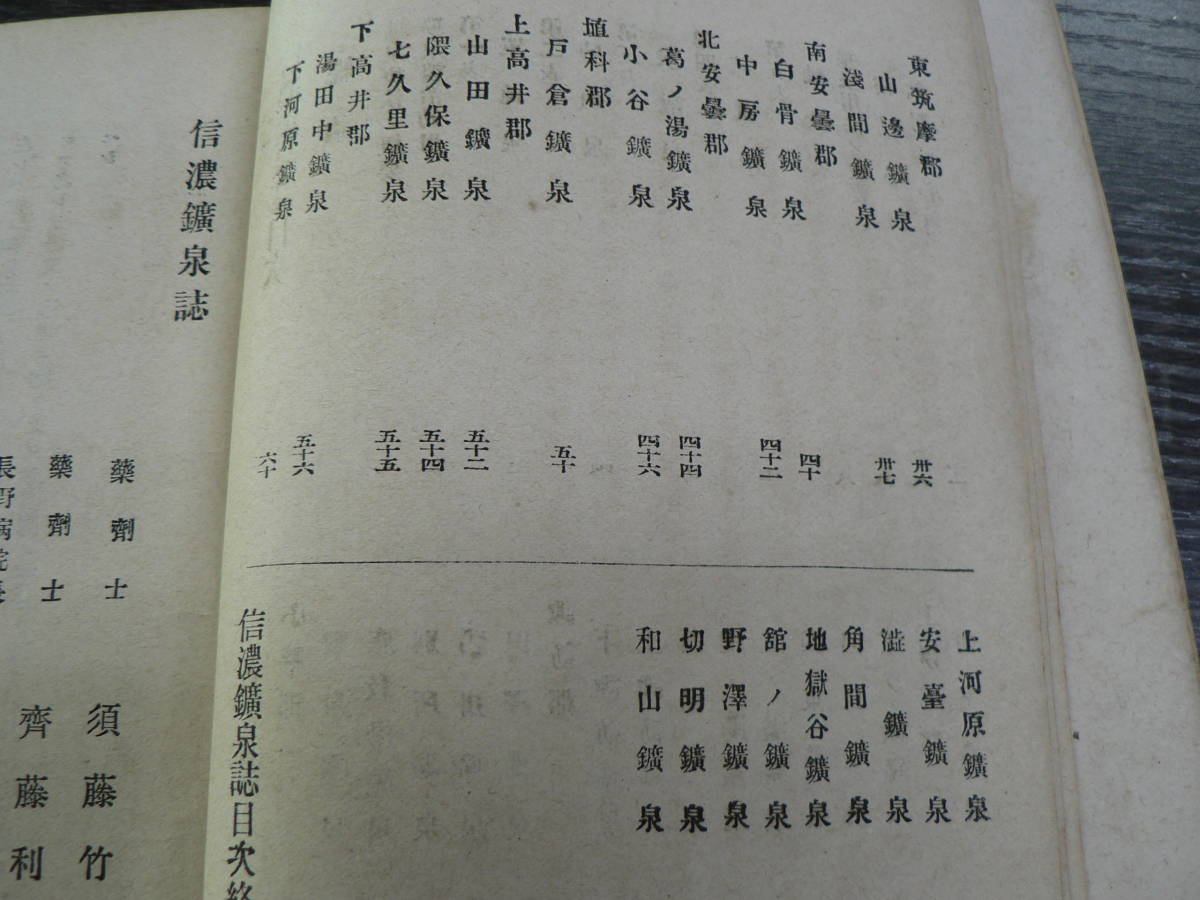 東筑摩郡
山邊鑛泉 卅六
淺間鑛泉 卅七
南安曇郡
白骨鑛泉 四十
中房鑛泉 四十二
北安曇郡
葛ノ湯鑛泉 四十四
小谷鑛泉 四十六
埴科郡
戸倉鑛泉 五十
上高井郡
山田鑛泉 五十二
隈久保鑛泉 五十四
七久里鑛泉 五十五
下高井郡
湯田中鑛泉 五十六
下河原鑛泉 六十
上河原鑛泉
安臺鑛泉
澁鑛泉
角間鑛泉
地獄谷鑛泉
舘ノ鑛泉
野澤鑛泉
切明鑛泉
和山鑛泉
信濃鑛泉誌目次終
信濃鑛泉誌
藥劑士 須藤竹
藥劑士 齊藤利
長野病院長